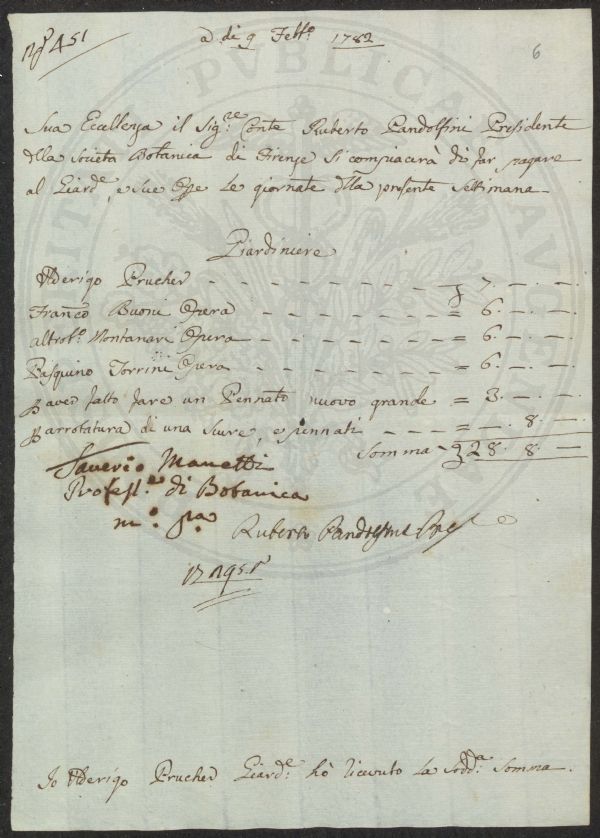 N.º 451
a dì 9 Febb.º 1782
6
Sua Eccellenza il Sig.re Conte Ruberto Pandolfini Presidente
della Società Botanica di Firenze si compiacerà di far pagare
al Giard.e, e sue Opre le giornate della presente Settimana
Giardiniere
Ulderigo Prucher - - - - - - - - 7. -. -.
Franc.o Buoni Opera - - - - - - = 6. -. -.
altro b.º Montanari Opera - - - - - - = 6. -. -.
Pasquino Torrini Opera - - - - - - = 6. -. -.
P aver fatto fare un Pennato nuovo grande = 3. -. -.
P arrotatura di una scure, e pennati - - - - = -. 8. -
Somma 28. 8. -
Saverio Manetti
Profess.e di Botanica
m.º p.a
Ruberto Pandolfini Pre
Io Ulderigo Prucher Giard.e hò ricevuto la Sodd.a Somma.
PVBLICA